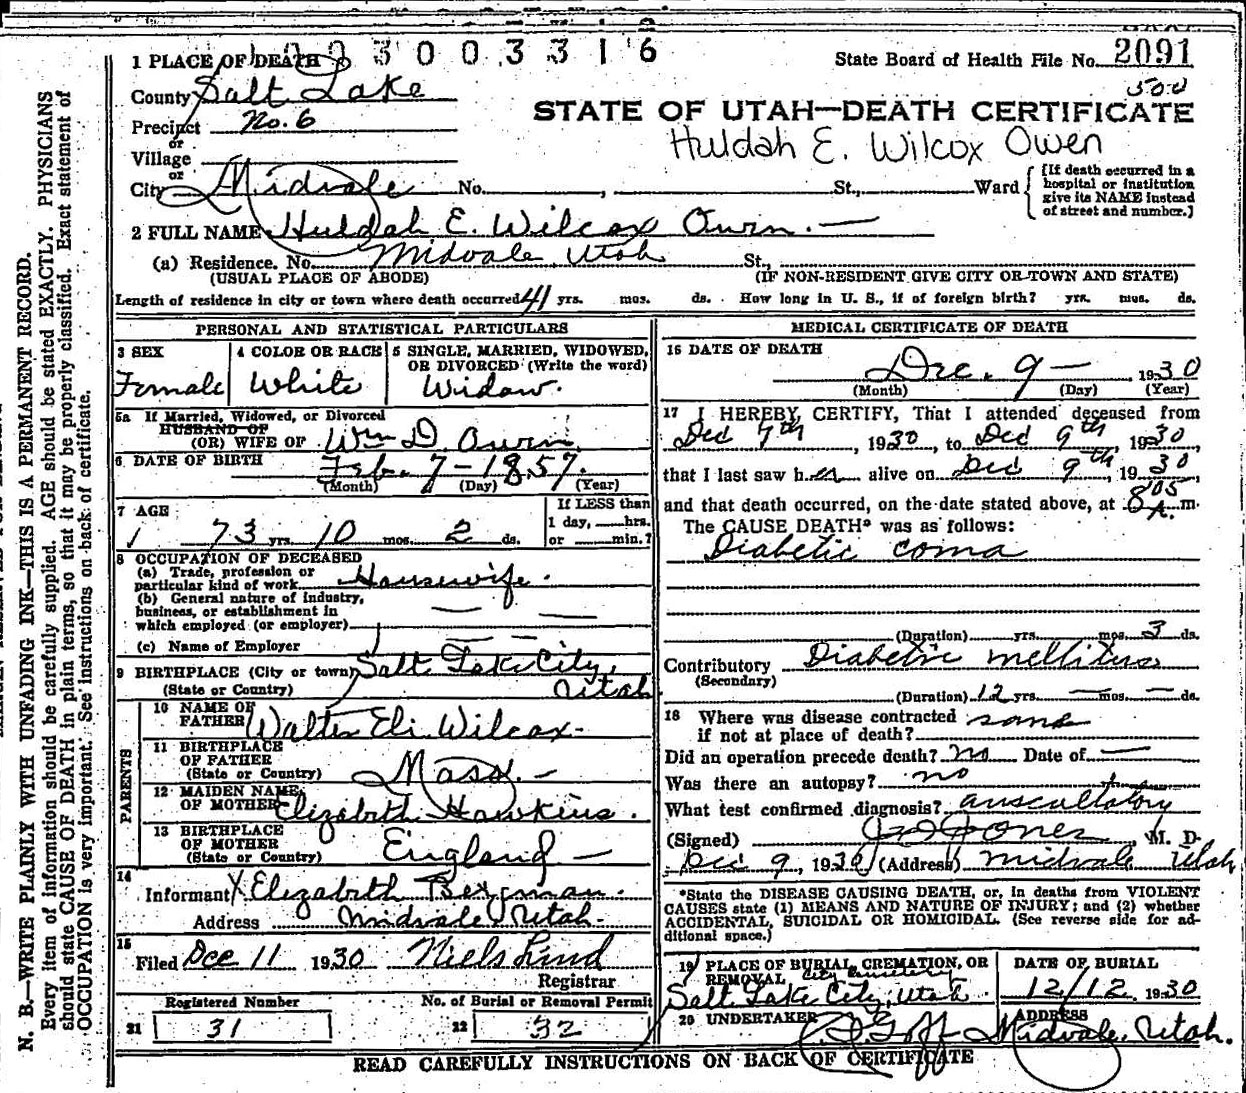 0 0 3 0 0 3 3 1 6
State Board of Health File No. 2091
500
1 PLACE OF DEATH
County Salt Lake
Precinct No. 6
or
Village
or
City Midvale No. , St., Ward
{If death occurred in a hospital or institution give its NAME instead of street and number.}
STATE OF UTAH—DEATH CERTIFICATE
Huldah E. Wilcox Owen
2 FULL NAME Huldah E. Wilcox Owen.
(a) Residence. No. Midvale, Utah St.,
(USUAL PLACE OF ABODE) (IF NON-RESIDENT GIVE CITY OR TOWN AND STATE)
Length of residence in city or town where death occurred 41 yrs. mos. ds. How long in U. S., if of foreign birth? yrs. mos. ds.
PERSONAL AND STATISTICAL PARTICULARS
3 SEX
Female
4 COLOR OR RACE
White
5 SINGLE, MARRIED, WIDOWED, OR DIVORCED (Write the word)
Widow.
5a If Married, Widowed, or Divorced
HUSBAND OF
(OR) WIFE OF Wm D Owen
6 DATE OF BIRTH Feb. 7 - 1857.
(Month) (Day) (Year)
7 AGE
73 yrs. 10 mos. 2 ds.
If LESS than
1 day, hrs.
or min.?
8 OCCUPATION OF DECEASED
(a) Trade, profession or
particular kind of work Housewife.
(b) General nature of industry,
business, or establishment in
which employed (or employer)
(c) Name of Employer
9 BIRTHPLACE (City or town) Salt Lake City,
(State or Country) Utah
PARENTS
10 NAME OF
FATHER Walter Eli Wilcox
11 BIRTHPLACE
OF FATHER
(State or Country) Mass.
12 MAIDEN NAME
OF MOTHER Elizabeth Hawkins.
13 BIRTHPLACE
OF MOTHER
(State or Country) England
14
Informant X Elizabeth Bergman.
Address Midvale, Utah.
15
Filed Dec 11 1930 Niels Lind
Registrar
Registered Number
21 31
No. of Burial or Removal Permit
22 32
MEDICAL CERTIFICATE OF DEATH
16 DATE OF DEATH
Dec. 9 — 1930
(Month) (Day) (Year)
17 I HEREBY CERTIFY, That I attended deceased from
Dec 7th, 1930, to Dec 9th, 1930
that I last saw her alive on Dec 9th, 1930
and that death occurred, on the date stated above, at 8 05 A.m.
The CAUSE DEATH* was as follows:
Diabetic coma
(Duration) yrs. mos. 3 ds.
Contributory Diabetic mellitus
(Secondary)
(Duration) 12 yrs. — mos. — ds.
18 Where was disease contracted same
if not at place of death?
Did an operation precede death? no Date of —
Was there an autopsy? no
What test confirmed diagnosis? auscultatory
(Signed) Jones, M. D.
Dec 9, 1930 (Address) Midvale Utah
*State the DISEASE CAUSING DEATH, or, in deaths from VIOLENT
CAUSES state (1) MEANS AND NATURE OF INJURY; and (2) whether
ACCIDENTAL, SUICIDAL OR HOMICIDAL. (See reverse side for ad-
ditional space.)
19 PLACE OF BURIAL, CREMATION, OR
REMOVAL City Cemetery
Salt Lake City, Utah
DATE OF BURIAL
12/12 1930
20 UNDERTAKER Goff
ADDRESS
Midvale, Utah.
READ CAREFULLY INSTRUCTIONS ON BACK OF CERTIFICATE
N. B.—WRITE PLAINLY WITH UNFADING INK—THIS IS A PERMANENT RECORD.
Every item of information should be carefully supplied. AGE should be stated EXACTLY. PHYSICIANS
should state CAUSE OF DEATH in plain terms, so that it may be properly classified. Exact statement of
OCCUPATION is very important. See instructions on back of certificate.